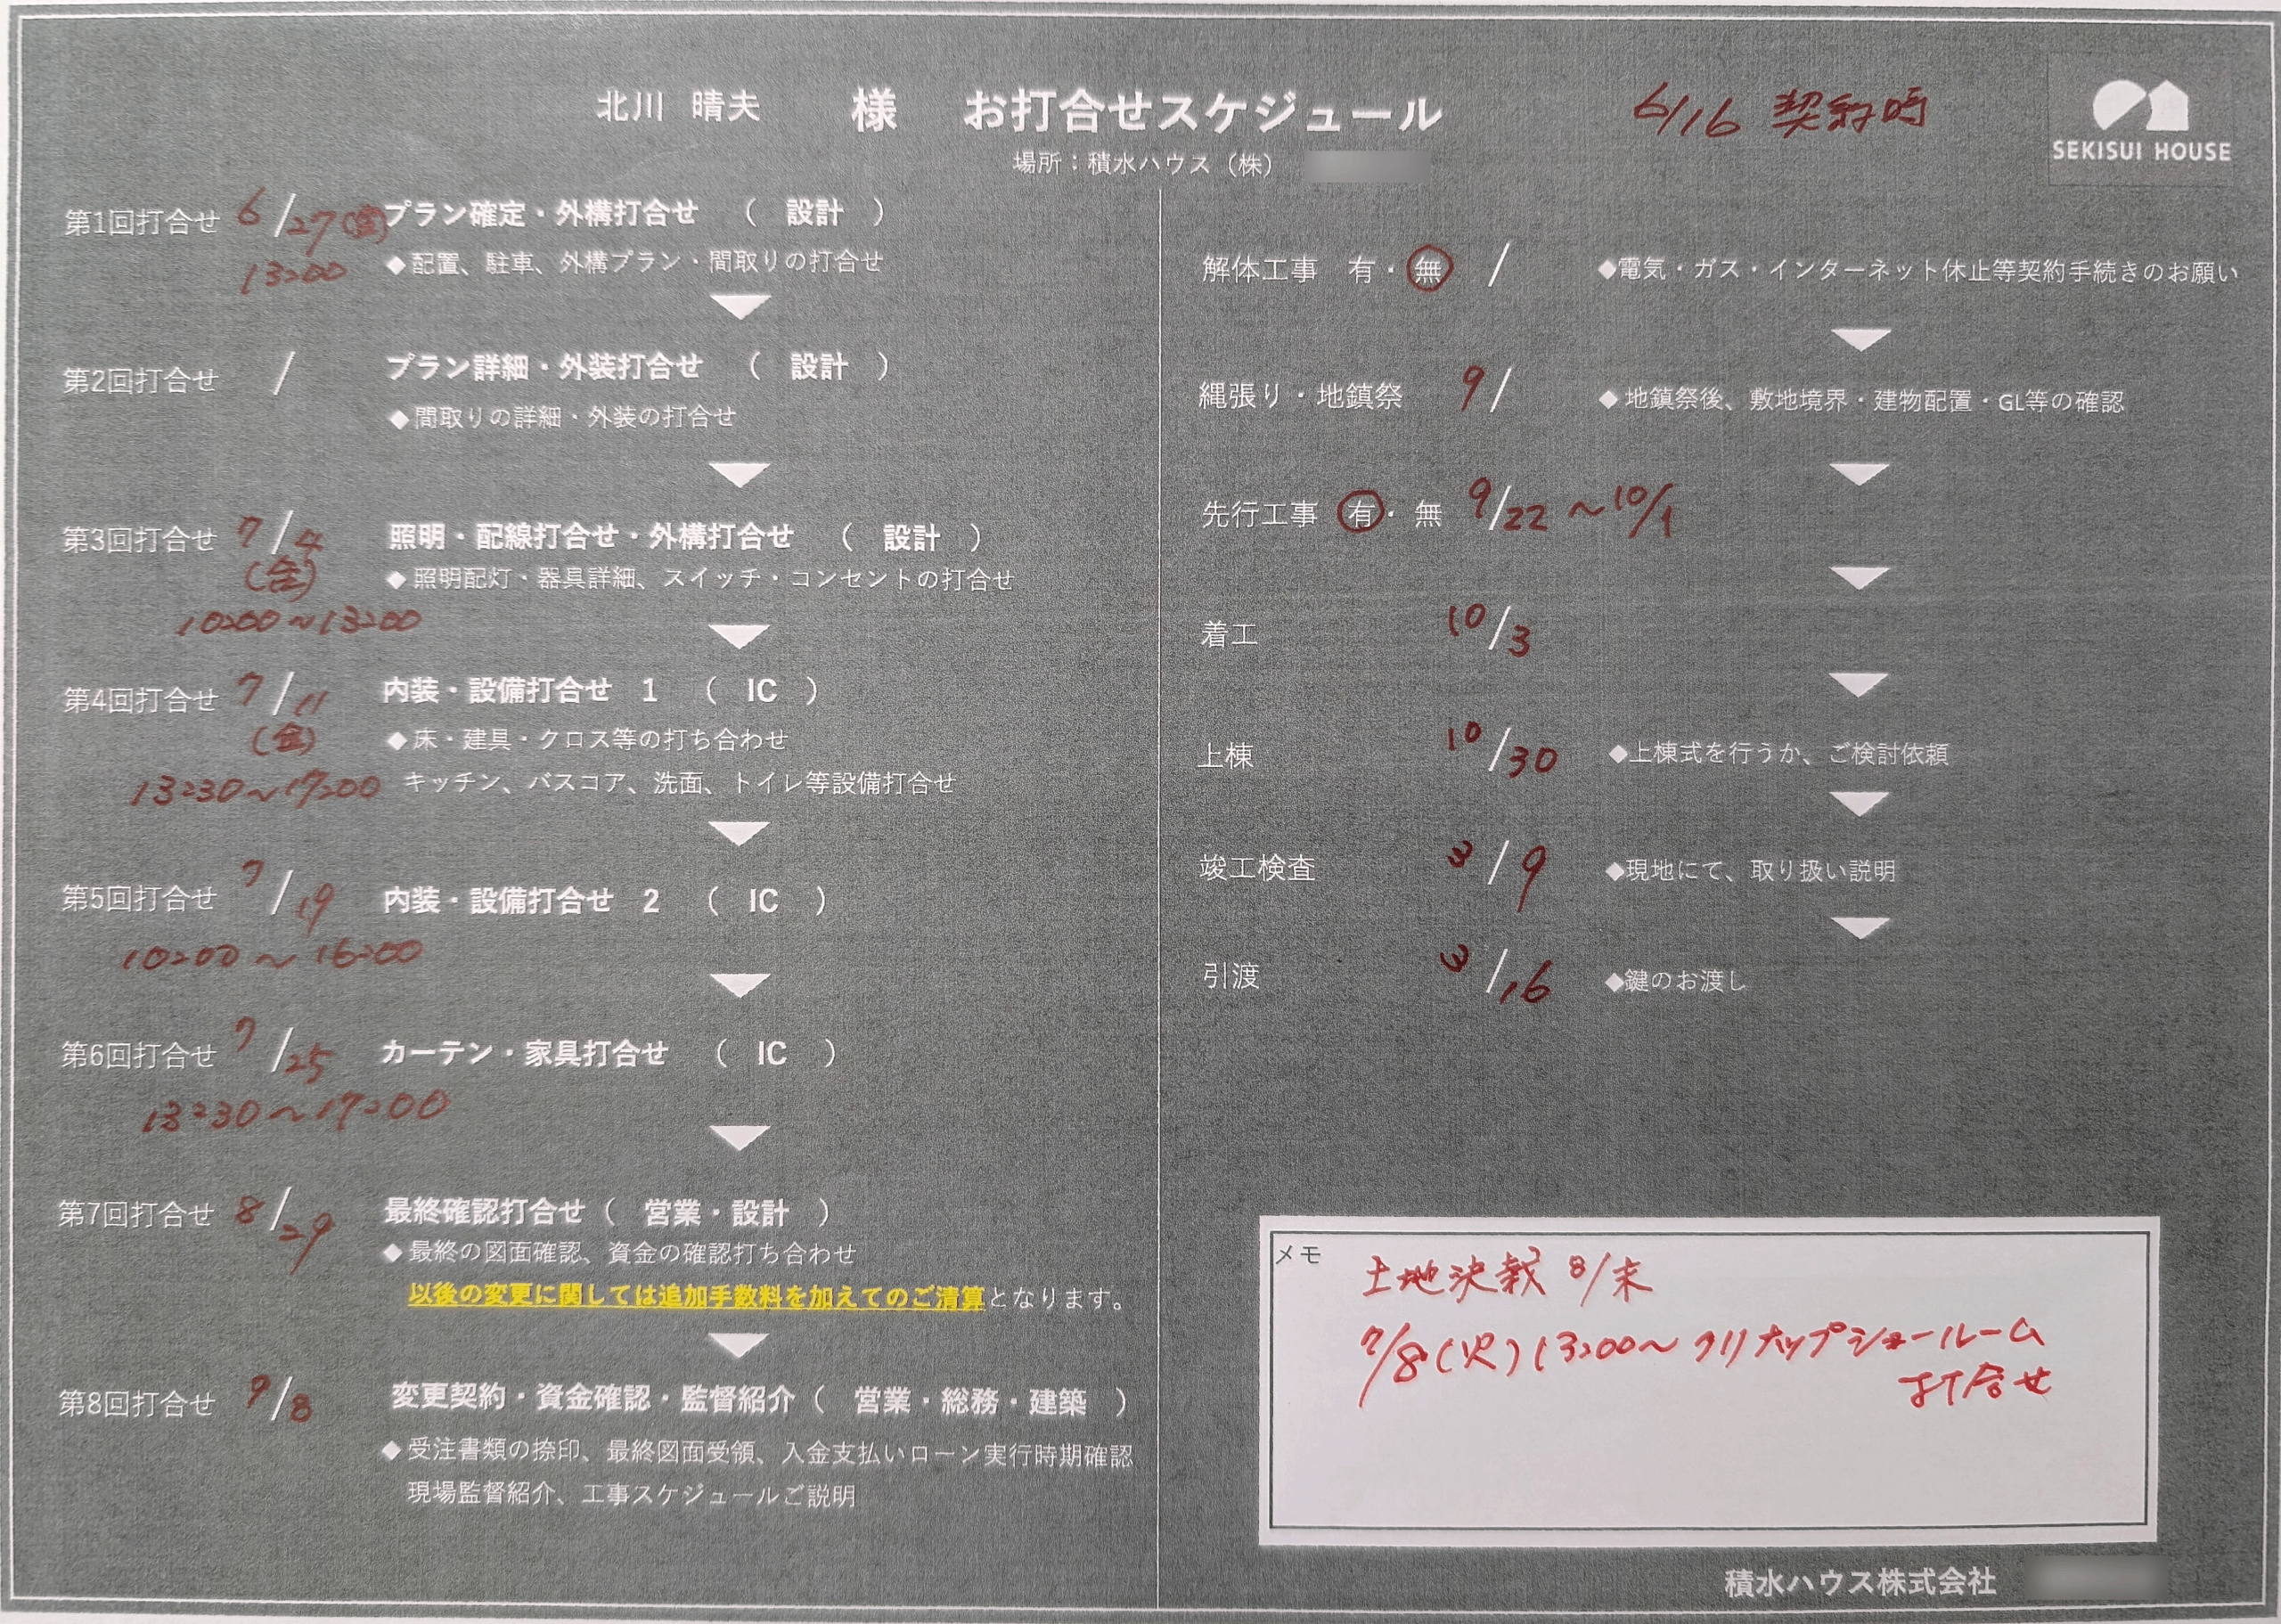 北川 晴夫 様 お打合せスケジュール
6/16 契約時
SEKISUI HOUSE
場所：積水ハウス（株）
第1回打合せ 6/27(金) プラン確定・外構打合せ （ 設計 ）
13:00 ◆配置、駐車、外構プラン・間取りの打合せ
第2回打合せ / プラン詳細・外装打合せ （ 設計 ）
◆間取りの詳細・外装の打合せ
第3回打合せ 7/4 照明・配線打合せ・外構打合せ （ 設計 ）
(金) ◆照明配灯・器具詳細、スイッチ・コンセントの打合せ
10:00～13:00
第4回打合せ 7/11 内装・設備打合せ 1 （ IC ）
(金) ◆床・建具・クロス等の打ち合わせ
13:30～17:00 キッチン、バスコア、洗面、トイレ等設備打合せ
第5回打合せ 7/19 内装・設備打合せ 2 （ IC ）
10:00～16:00
第6回打合せ 7/25 カーテン・家具打合せ （ IC ）
13:30～17:00
第7回打合せ 8/29 最終確認打合せ（ 営業・設計 ）
◆最終の図面確認、資金の確認打ち合わせ
以後の変更に関しては追加手数料を加えてのご清算となります。
第8回打合せ 9/8 変更契約・資金確認・監督紹介（ 営業・総務・建築 ）
◆受注書類の捺印、最終図面受領、入金支払いローン実行時期確認
現場監督紹介、工事スケジュールご説明
解体工事 有・無 / ◆電気・ガス・インターネット休止等契約手続きのお願い
縄張り・地鎮祭 9/ ◆地鎮祭後、敷地境界・建物配置・GL等の確認
先行工事 有・無 9/22～10/1
着工 10/3
上棟 10/30 ◆上棟式を行うか、ご検討依頼
竣工検査 3/9 ◆現地にて、取り扱い説明
引渡 3/16 ◆鍵のお渡し
メモ
土地決裁 8/末
7/8(火) 13:00～ クリナップショールーム
打合せ
積水ハウス株式会社